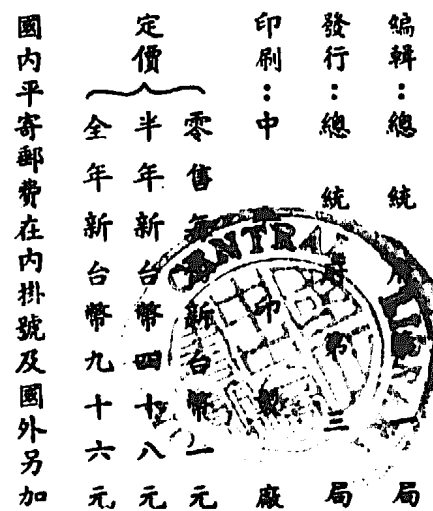 編輯：總統府局
發行：總統府第三局
印刷：中印製廠
定價
零售每新台幣一元
半年新台幣四十八元
全年新台幣九十六元
國內平寄郵費在內掛號及國外另加
CENTRAL